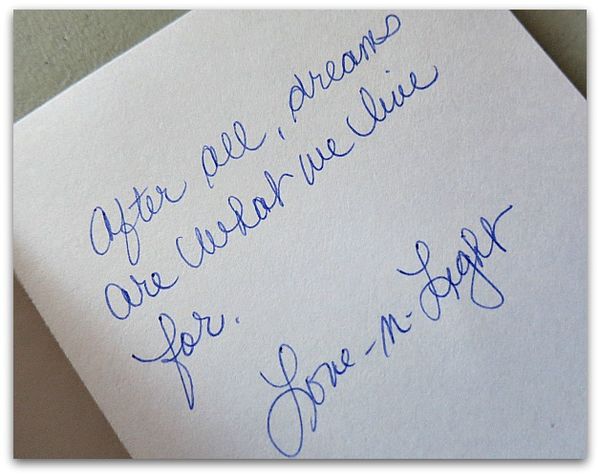 After all, dreams
are what we live
for.
Love-n-Light